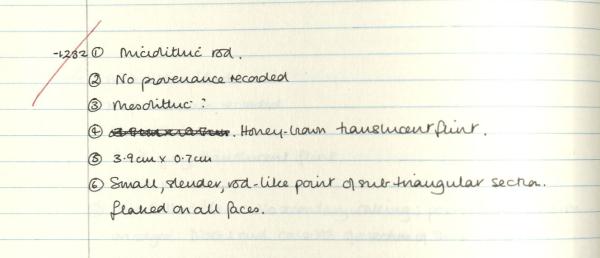 -1,232 ① Microlithic rod.
② No provenance recorded
③ Mesolithic?
④ 3.9cm x 0.7cm. Honey-brown translucent flint.
⑤ 3.9cm x 0.7cm
⑥ Small, slender, rod-like point of sub triangular section.
flaked on all faces.